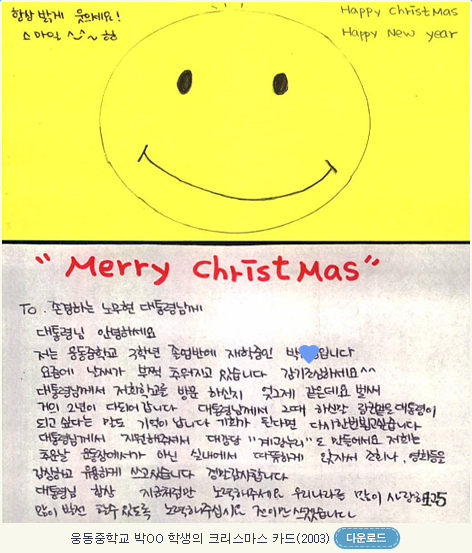 항상 밝게 웃으세요!
스마일 ^-^~ 헝
Happy Christmas
Happy New year
"Merry Christmas"
To. 존경하는 노무현 대통령님께
대통령님 안녕하세요
저는 웅동중학교 3학년 졸업반에 재학중인 박 입니다
요즘에 날씨가 부쩍 추워지고 있습니다 감기조심하세요^^
대통령님께서 저희학교를 방문 하신지 엊그제 같은데요 벌써
거의 2년이 다되어갑니다 대통령님께서 그때 하신말 대통령이
되고 싶다는 말도 기억이 납니다 기회가 된다면 다시한번뵙고싶습니다
대통령님께서 지원해주셔서 대강당 "계광누리"도 만들에요 저희는
추운날 운동장에서가 아닌 실내에서 따뜻하게 앉아서 조회나, 영화등을
감상하고 유용하게 쓰고있습니다 정말감사합니다
대통령님 항상 지금처럼만 노력해주셔요 우리나라를 많이 사랑하고
15
많이 발전 할수있도록 노력해주십시요 전이만 쓰겠습니다
웅동중학교 박OO 학생의 크리스마스 카드(2003)
다운로드